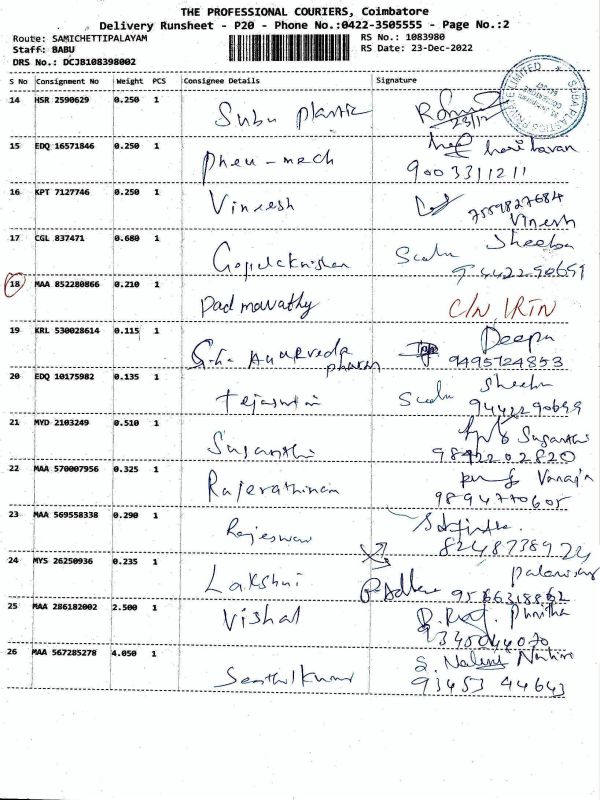 THE PROFESSIONAL COURIERS, Coimbatore
Delivery Runsheet - P20 - Phone No.:0422-3505555 - Page No.:2
Route: SAMICHETTIPALAYAM RS No.: 1083980
Staff: BABU RS Date: 23-Dec-2022
DRS No.: DCJB108398002
S No Consignment No Weight PCS Consignee Details Signature
14 HSR 2590629 0.250 1 Subu plastic 23/12
15 EDQ 16571846 0.250 1 Pheu-mech hariharan
9003311211
16 KPT 7127746 0.250 1 Vineesh 7559827684
Vinesh
17 CGL 837471 0.680 1 Sheeba
18 MAA 852280866 0.210 1 Padmavathy C/N IRTN
19 KRL 530028614 0.115 1 Ayurveda Deepa
9495724853
20 EDQ 10175982 0.135 1 Sheeba
9442290699
21 MYD 2103249 0.510 1 Suganthi Suganthi
9842202820
22 MAA 570007956 0.325 1 Rajerathinam Vanaja
9894770605
23 MAA 569558338 0.290 1 Rajeswari
8248738924
24 MYS 26250936 0.235 1 Lakshmi
9566318862
25 MAA 286182002 2.500 1 Vishal Punitha
9340044070
26 MAA 567285278 4.050 1 Senthilkumar S. Nalini Nalini
93453 44643